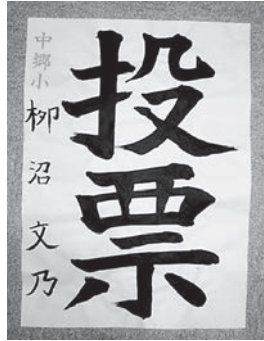 投票
中郷小
柳沼 文乃